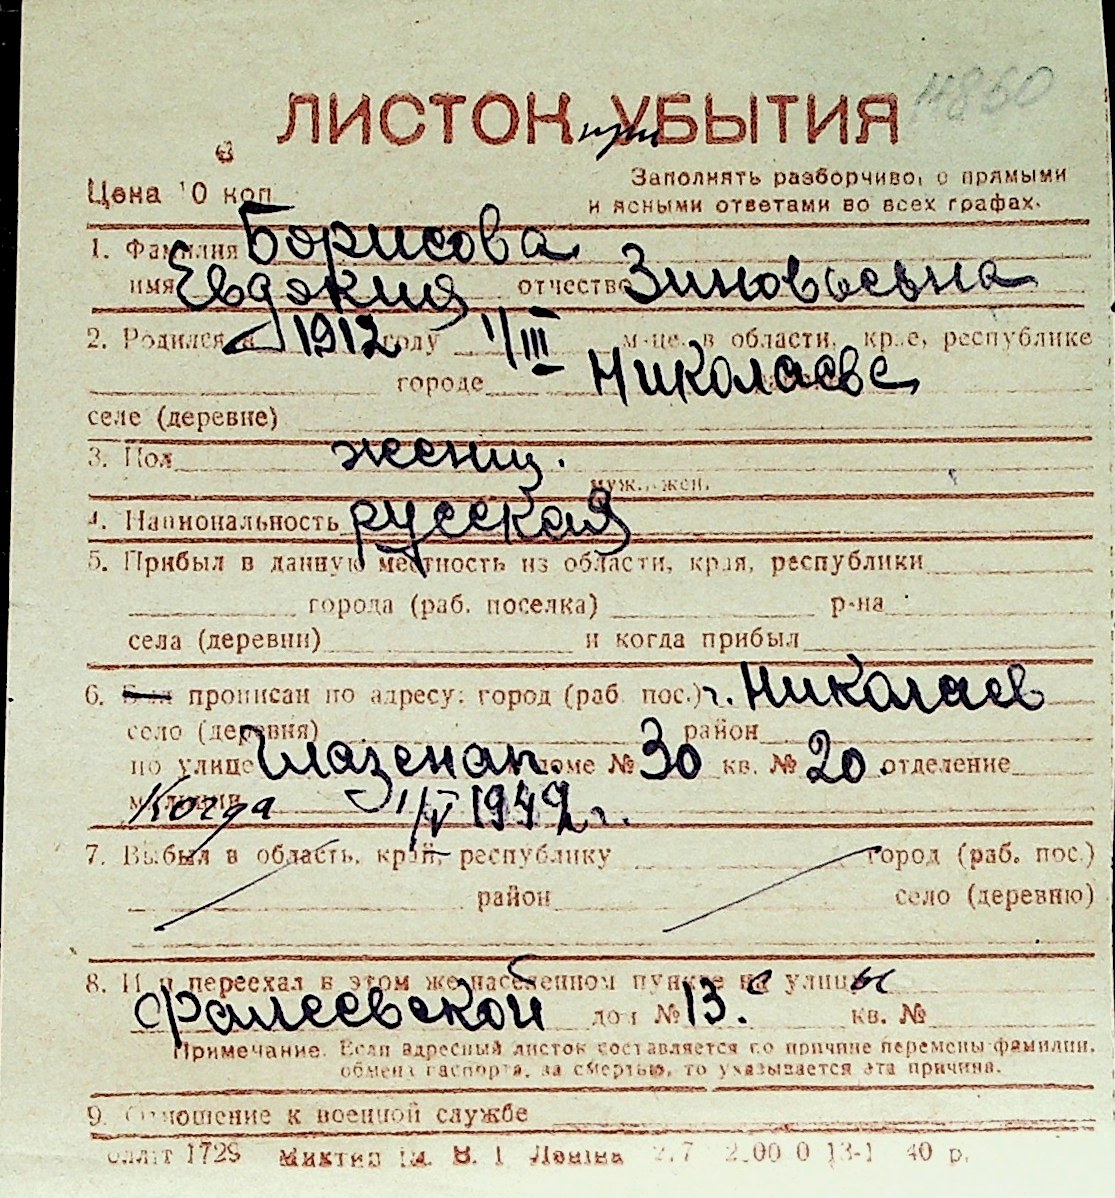 11860
ЛИСТОК при УБЫТИЯ
Цена 10 коп
Заполнять разборчиво, с прямыми
и ясными ответами во всех графах.
1. Фамилия Борисова
имя Евдокия отчество Зиновьевна
2. Родился в 1912 году 1/III м-це, в области, крае, республике
городе Николаеве
селе (деревне)
3. Пол женщ.
муж., жен.
4. Национальность русская
5. Прибыл в данную местность из области, края, республики
города (раб. поселка) р-на
села (деревни) и когда прибыл
6. Был прописан по адресу: город (раб. пос.) г. Николаев
село (деревня) район
по улице Глазенап. доме № 30 кв. № 20. отделение
милиции Когда 1/IV 1942 г.
7. Выбыл в область, край, республику город (раб. пос.)
район село (деревню)
8. Или переехал в этом же населенном пункте на с улицы
Фалеевской дом № 13. кв. №
Примечание. Если адресный листок составляется по причине перемены фамилии,
обмена паспорта, за смертью, то указывается эта причина.
9. Отношение к военной службе
1729 Ленина 13-1 40 р.